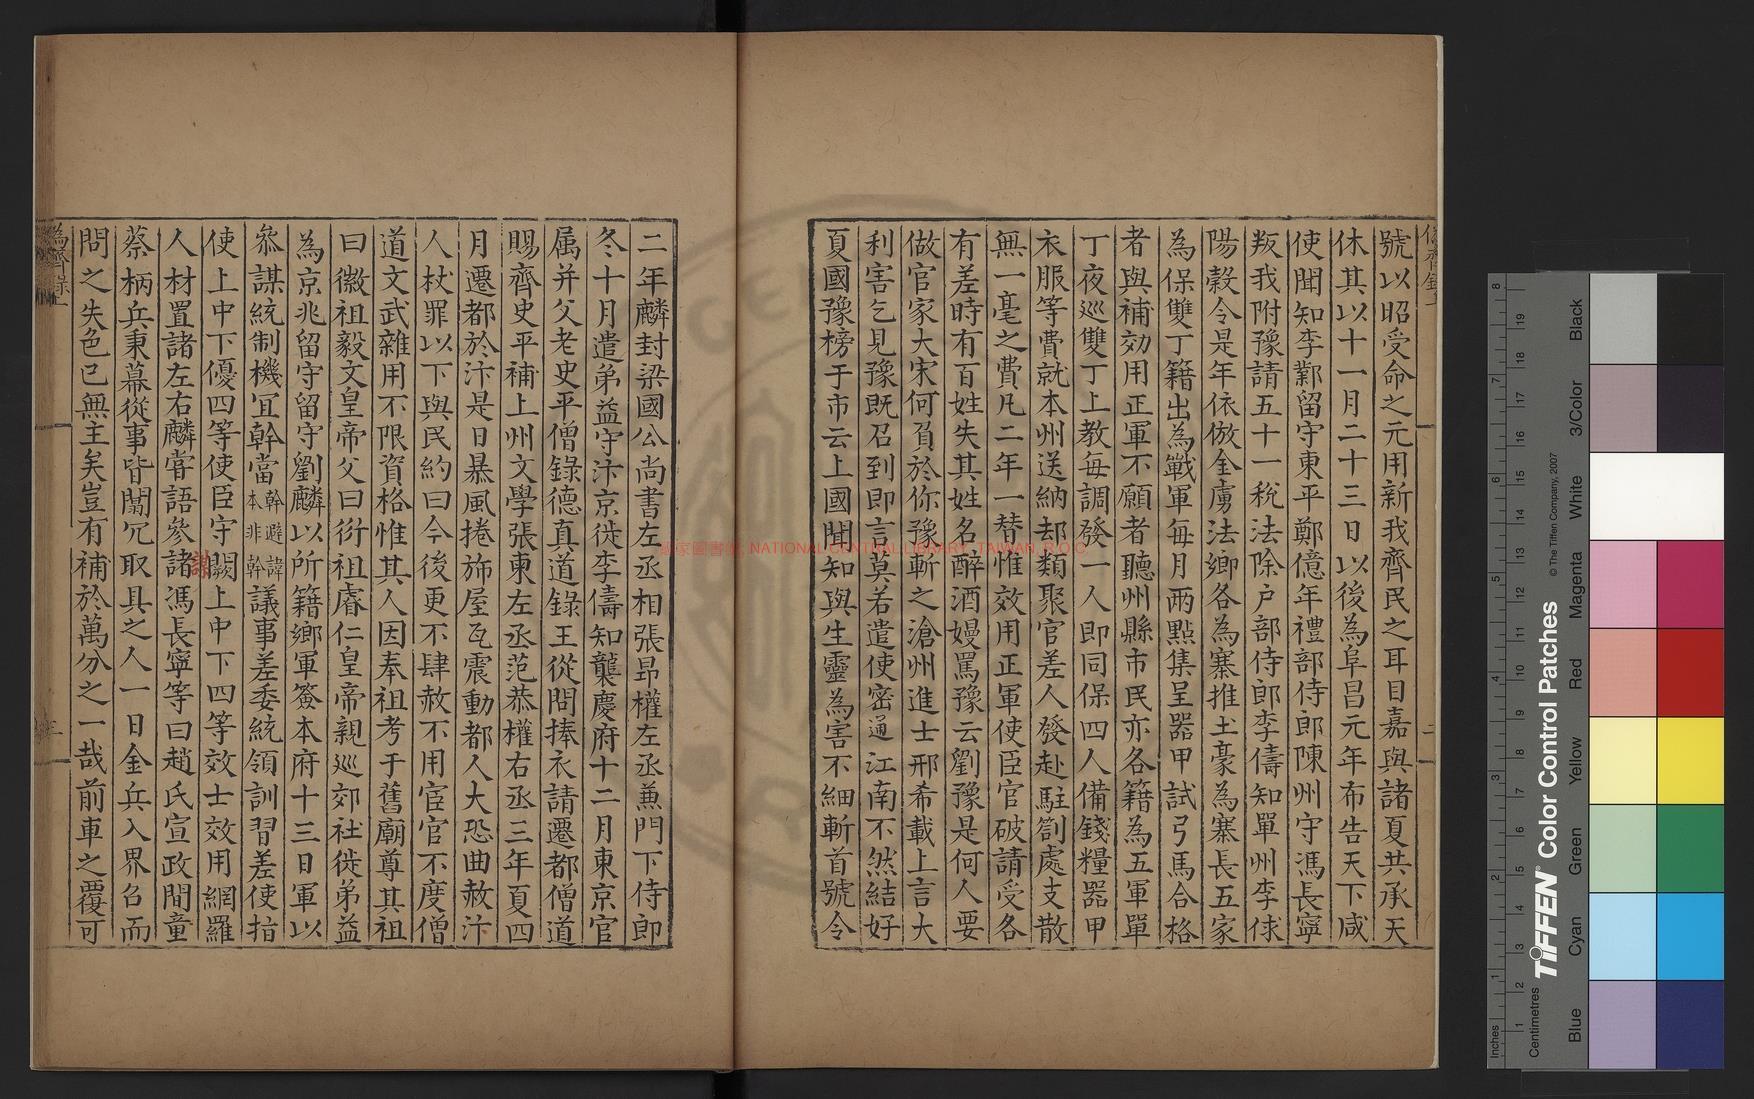 號以昭受命之元用新我齊民之耳目嘉與諸夏共承天
休其以十一月二十三日以後為阜昌元年布告天下咸
使聞知李鄴留守東平鄭億年禮部侍郎陳州守馮長寧
叛我附豫請五十一稅法除戶部侍郎李儔知單州李俅
陽穀令是年依倣金虜法鄉各為寨推土豪為寨長五家
為保雙丁籍出為戰軍每月兩點集呈器甲試弓馬合格
者與補効用正軍不願者聽州縣市民亦各籍為五軍單
丁夜巡雙丁上教每調發一人即同保四人備錢糧器甲
衣服等費就本州送納却類聚官差人發赴駐劄處支散
無一毫之費凡二年一替惟效用正軍使臣官破請受各
有差時有百姓失其姓名醉酒嫚罵豫云劉豫是何人要
做官家大宋何負於你豫斬之滄州進士邢希載上言大
利害乞見豫既召到即言莫若遣使密通江南不然結好
夏國豫榜于市云上國聞知與生靈為害不細斬首號令
二年麟封梁國公尚書左丞相張昂權左丞兼門下侍郎
冬十月遣弟益守汴京徙李儔知襲慶府十二月東京官
属并父老史平僧錄德真道錄王從問捧衣請遷都僧道
賜齊史平補上州文學張東左丞范恭權右丞三年夏四
月遷都於汴是日暴風捲旆屋瓦震動都人大恐曲赦汴
人杖罪以下與民約曰今後更不肆赦不用宦官不度僧
道文武雜用不限資格惟其人因奉祖考于舊廟尊其祖
曰徽祖毅文皇帝父曰衍祖睿仁皇帝親巡郊社徙弟益
為京兆留守留守劉麟以所籍鄉軍簽本府十三日軍以
叅謀統制機宜幹當幹避諱本非幹議事差委統領訓習差使指
使上中下優四等使臣守闕上中下四等效士效用網羅
人材置諸左右麟嘗語參謀諸馮長寧等曰趙氏宣政間童
蔡柄兵秉幕從事皆闒冗取具之人一日金兵入界召而
問之失色已無主矣豈有補於萬分之一哉前車之覆可
國家圖書館 NATIONAL CENTRAL LIBRARY, TAIWAN, R.O.C.
TIFFEN Color Control Patches © The Tiffen Company, 2007
Inches
Centimetres
Blue Cyan Green Yellow Red Magenta White 3/Color Black